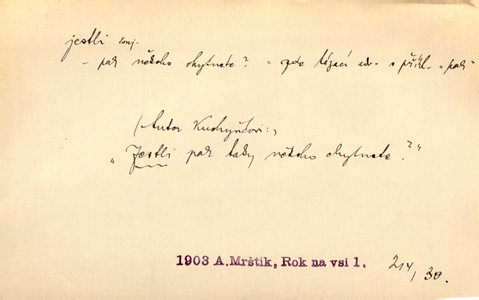 jestli konj.
- pak někoho chytnete? - zde tázací - s přísl. „pak"
(Autor Kuchyňkovi:,
„Jestli pak taky někoho chytnete?"
1903 A.Mrštík, Rok na vsi 1. 214, 30.